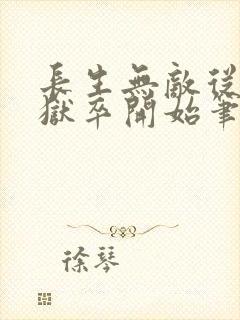 長生無敵從
獄卒開始筆
徐琴